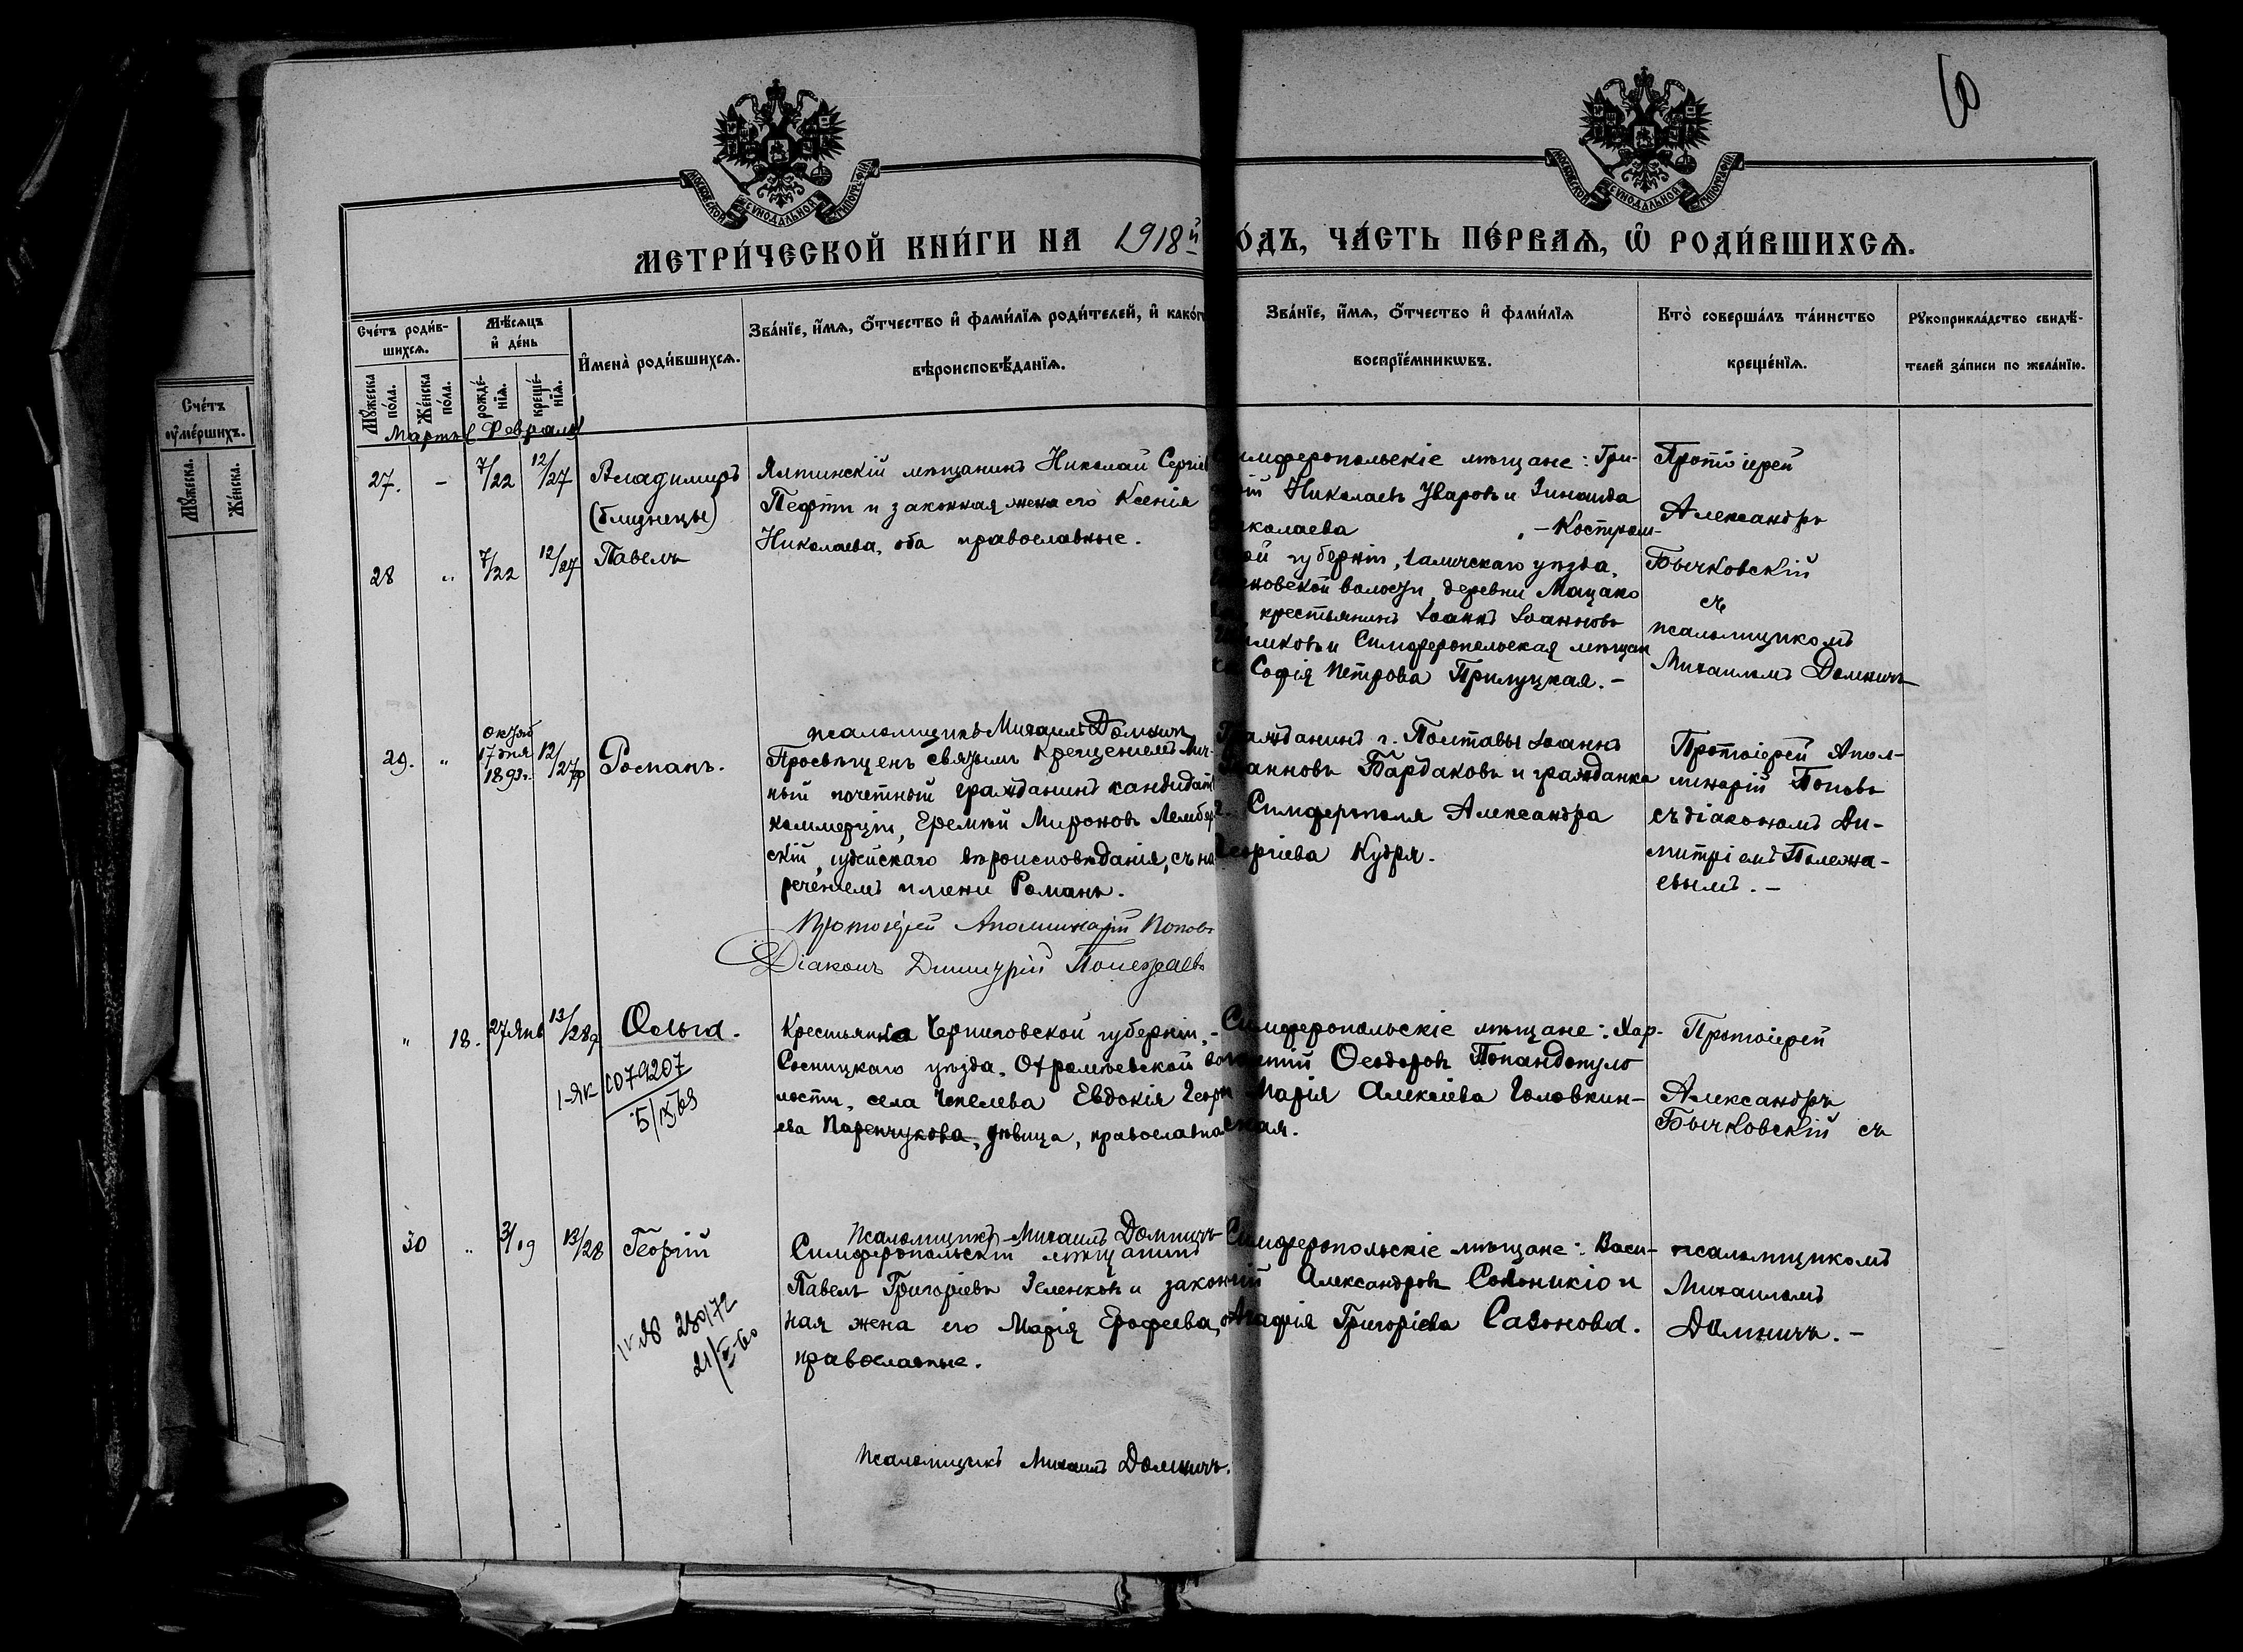 60
МОСКОВСКОЙ СѴНОДАЛЬНОЙ ТИПОГРАФІИ
МОСКОВСКОЙ СѴНОДАЛЬНОЙ ТИПОГРАФІИ
МЕТРИ́ЧЕСКОЙ КНИ́ГИ НА 1918й
О́ДЪ, ЧА́СТЬ ПЕ́РВАѦ, Ѽ РОДИ́ВШИХСѦ.
Сче́тъ роди́в-
шихсѧ.
Мѣ́сѧцъ
и҆ де́нь
Мꙋ́жеска
по́ла.
Же́нска
по́ла.
рожде́-
нїѧ.
креще́-
нїѧ.
И҆мена̀ роди́вшихсѧ.
Зва́нїе, и҆́мѧ, ѻ҆́тчество и҆ фами́лїѧ роди́телей, и҆ како́г
вѣроисповѣ́данїѧ.
Зва́нїе, и҆́мѧ, ѻ҆́тчество и҆ фами́лїѧ
воспрїе́мникѡвъ.
Кто̀ соверша́лъ та́инство
креще́нїѧ.
Рꙋкоприкла́дство свидѣ́-
телей за́писи по жела́нїю.
Сче́тъ
ᲂу҆ме́ршихъ.
Мꙋ́жеска.
Же́нска.
Марта Февраля
27. - 7/22 12/27 Владимиръ
(близнецы)
28 " 7/22 12/27 Павелъ
Ялтинскій мѣщанинъ Николай Сергіев
Пефти и законная жена его Ксенія
Николаева, оба православные.
имферопольскіе мѣщане: Гри-
ій Николаевъ Уваровъ и Зинаида
колаева - Костром-
ой губерніи, Галичскаго уѣзда,
новской волости, деревни Мацако
крестьянинъ Іоаннъ Іоанновъ
и Симферопольская мѣщан
ка Софія Петрова Прилуцкая. -
Протоіерей
Александръ
Бычковскій
съ
псаломщикомъ
Михаиломъ Домничъ
псаломщикъ Михаилъ Домничъ
29. " октяб
17 дня
1893г. 12/27ф Романъ.
Просвѣщенъ святымъ крещеніемъ Лич-
ный почетный гражданинъ кандидатъ
коммерціи, Еремѣй Мироновъ Лембер
скій, іудейскаго вѣроисповѣданія, съ на
реченіемъ имени Романъ.
Протоіерей Аполлинарій Поповъ
Діаконъ Димитрій Полежаевъ
Гражданинъ г. Полтавы Іоаннъ
Іоанновъ Бардаковъ и гражданка
г. Симферополя Александра
Георгіева Кудря.
Протоіерей Апол-
линарій Поповъ
съ діакономъ Ди-
митріемъ Полежа-
евымъ. -
" 18. 27 Янв 13/28ф Ольга.
I-ЯК 079207
5/IX 69
Крестьянка Черниговской губерніи,
Сосницкаго уѣзда, Охромѣевской во
лости, села Чепелева Евдокія Георг
ева Паренчукова, дѣвица, православна
Симферопольскіе мѣщане: Хар-
лампій Ѳеодоровъ Попандопуло
Марія Алексіева Головкин-
ская.
Протоіерей
Александръ
Бычковскій съ
Псаломщикъ Михаилъ Домничъ
30 " 3/19 13/28 Георгій
280172
21/V-60
Симферопольскій мѣщанинъ
Павелъ Григоріевъ Зеленковъ и закон
ная жена его Марія Ерофеева, о
православные.
Симферопольскіе мѣщане: Васи-
лій Александровъ Солоникіо и
Агафія Григоріева Сазонова.
псаломщикомъ
Михаиломъ
Домничъ. -
Псаломщикъ Михаилъ Домничъ.